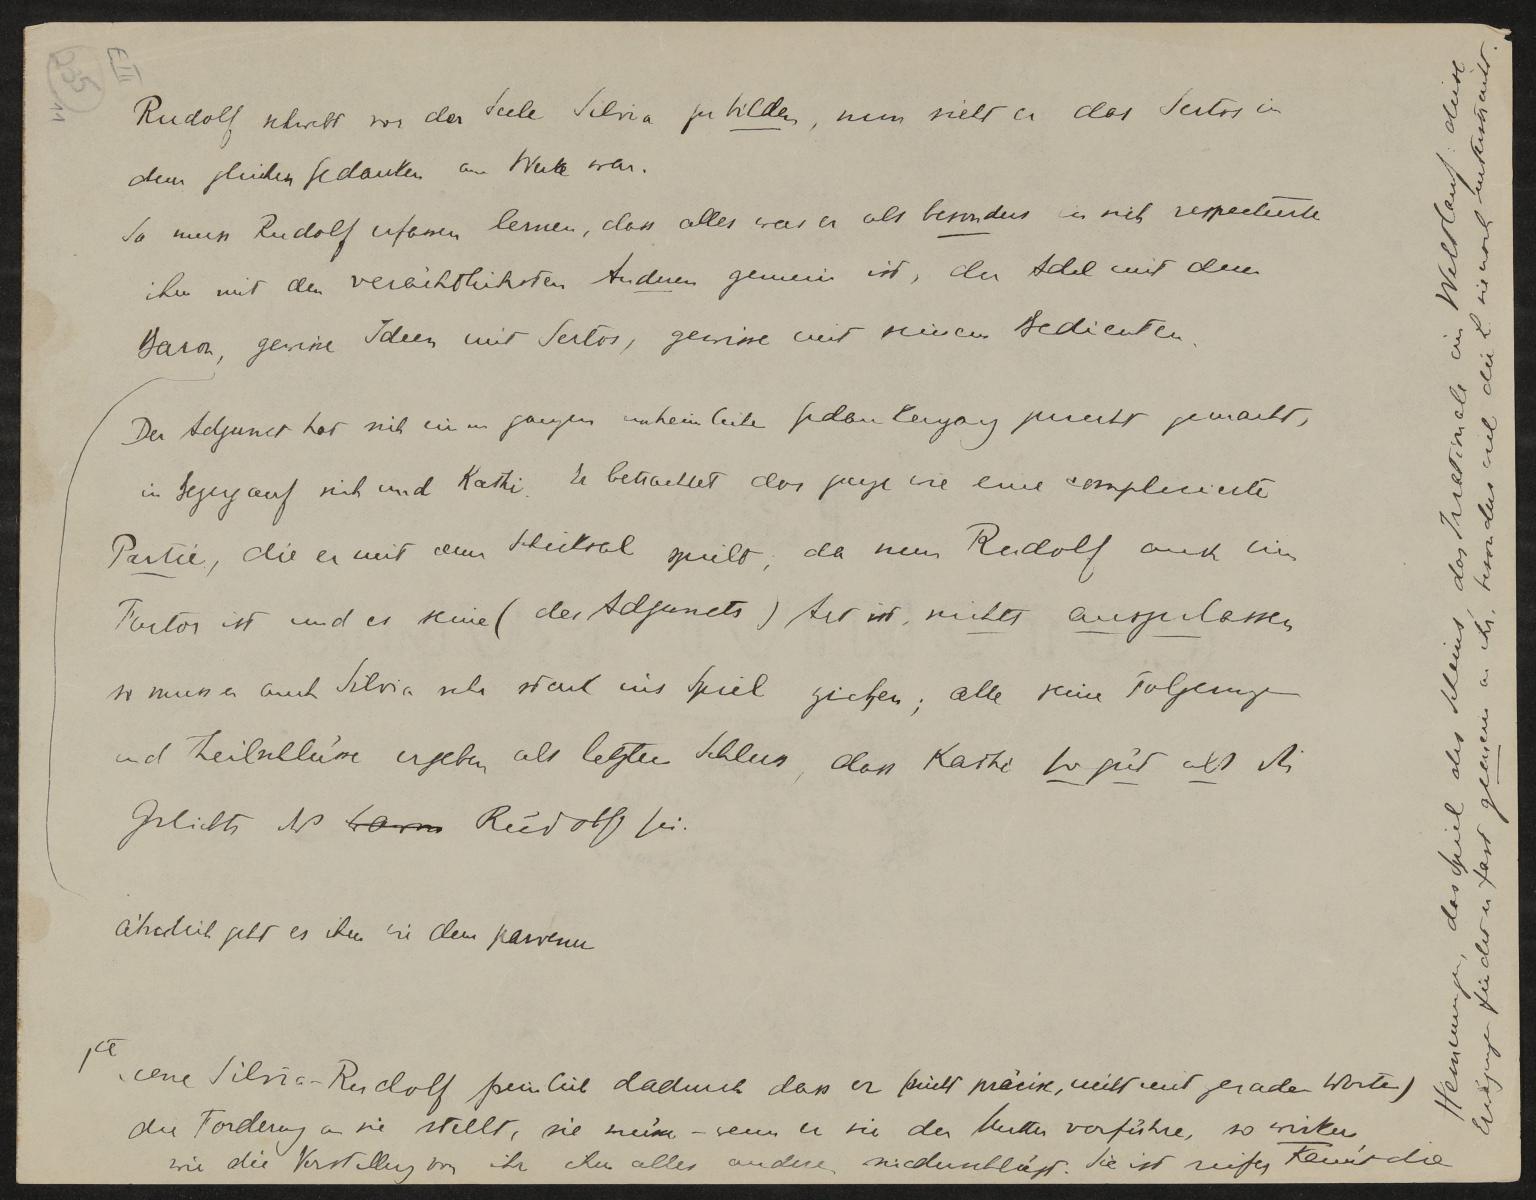 E III
235
11
Rudolf schwebt vor der Seele Silvia zu bilden, nun sieht er dass Sertos in
dem gleichen Gedanken am Werk war.
So muss Rudolf erfassen lernen, dass alles was er als besonders in sich respectierte
ihm mit den verächtlichsten Anderen gemein ist, der Adel mit dem
Baron, gewisse Ideen mit Sertos, gewisse mit seinem Bedienten.
Der Adjunct hat sich einen ganzen unheimlichen Gedankengang zurecht gemacht,
in Bezug auf sich und Kathi. Er betrachtet das ganze wie eine complicierte
Partie, die er mit dem Schicksal spielt; da nun Rudolf auch ein
Factor ist und es seine (des Adjuncts) Art ist, nichts auszulassen
so muss er auch Silvia sehr stark ins Spiel ziehen; alle seine Folgerungen
und Theilschlüsse ergeben als letzten Schluss, dass Kathi so gut als die
Geliebte des Barons Rudolf sei.
ähnlich geht es ihm wie dem parvenu
1te Scene Silvia-Rudolf peinlich dadurch dass er (nicht präcise, nicht mit geraden Worten)
die Forderung an sie stellt, sie müsse – wenn er sie der Mutter vorführe, so wirken
wie die Vorstellung von ihr ihm alles andere niederschlägt. Sie ist reifer kennt die
Hemmungen, das Spiel des Scheins, das Irrationale im Weltlauf: diese
Erwägungen findet er fast gemein an ihr, besonders weil die L. sie noch unterstreicht.